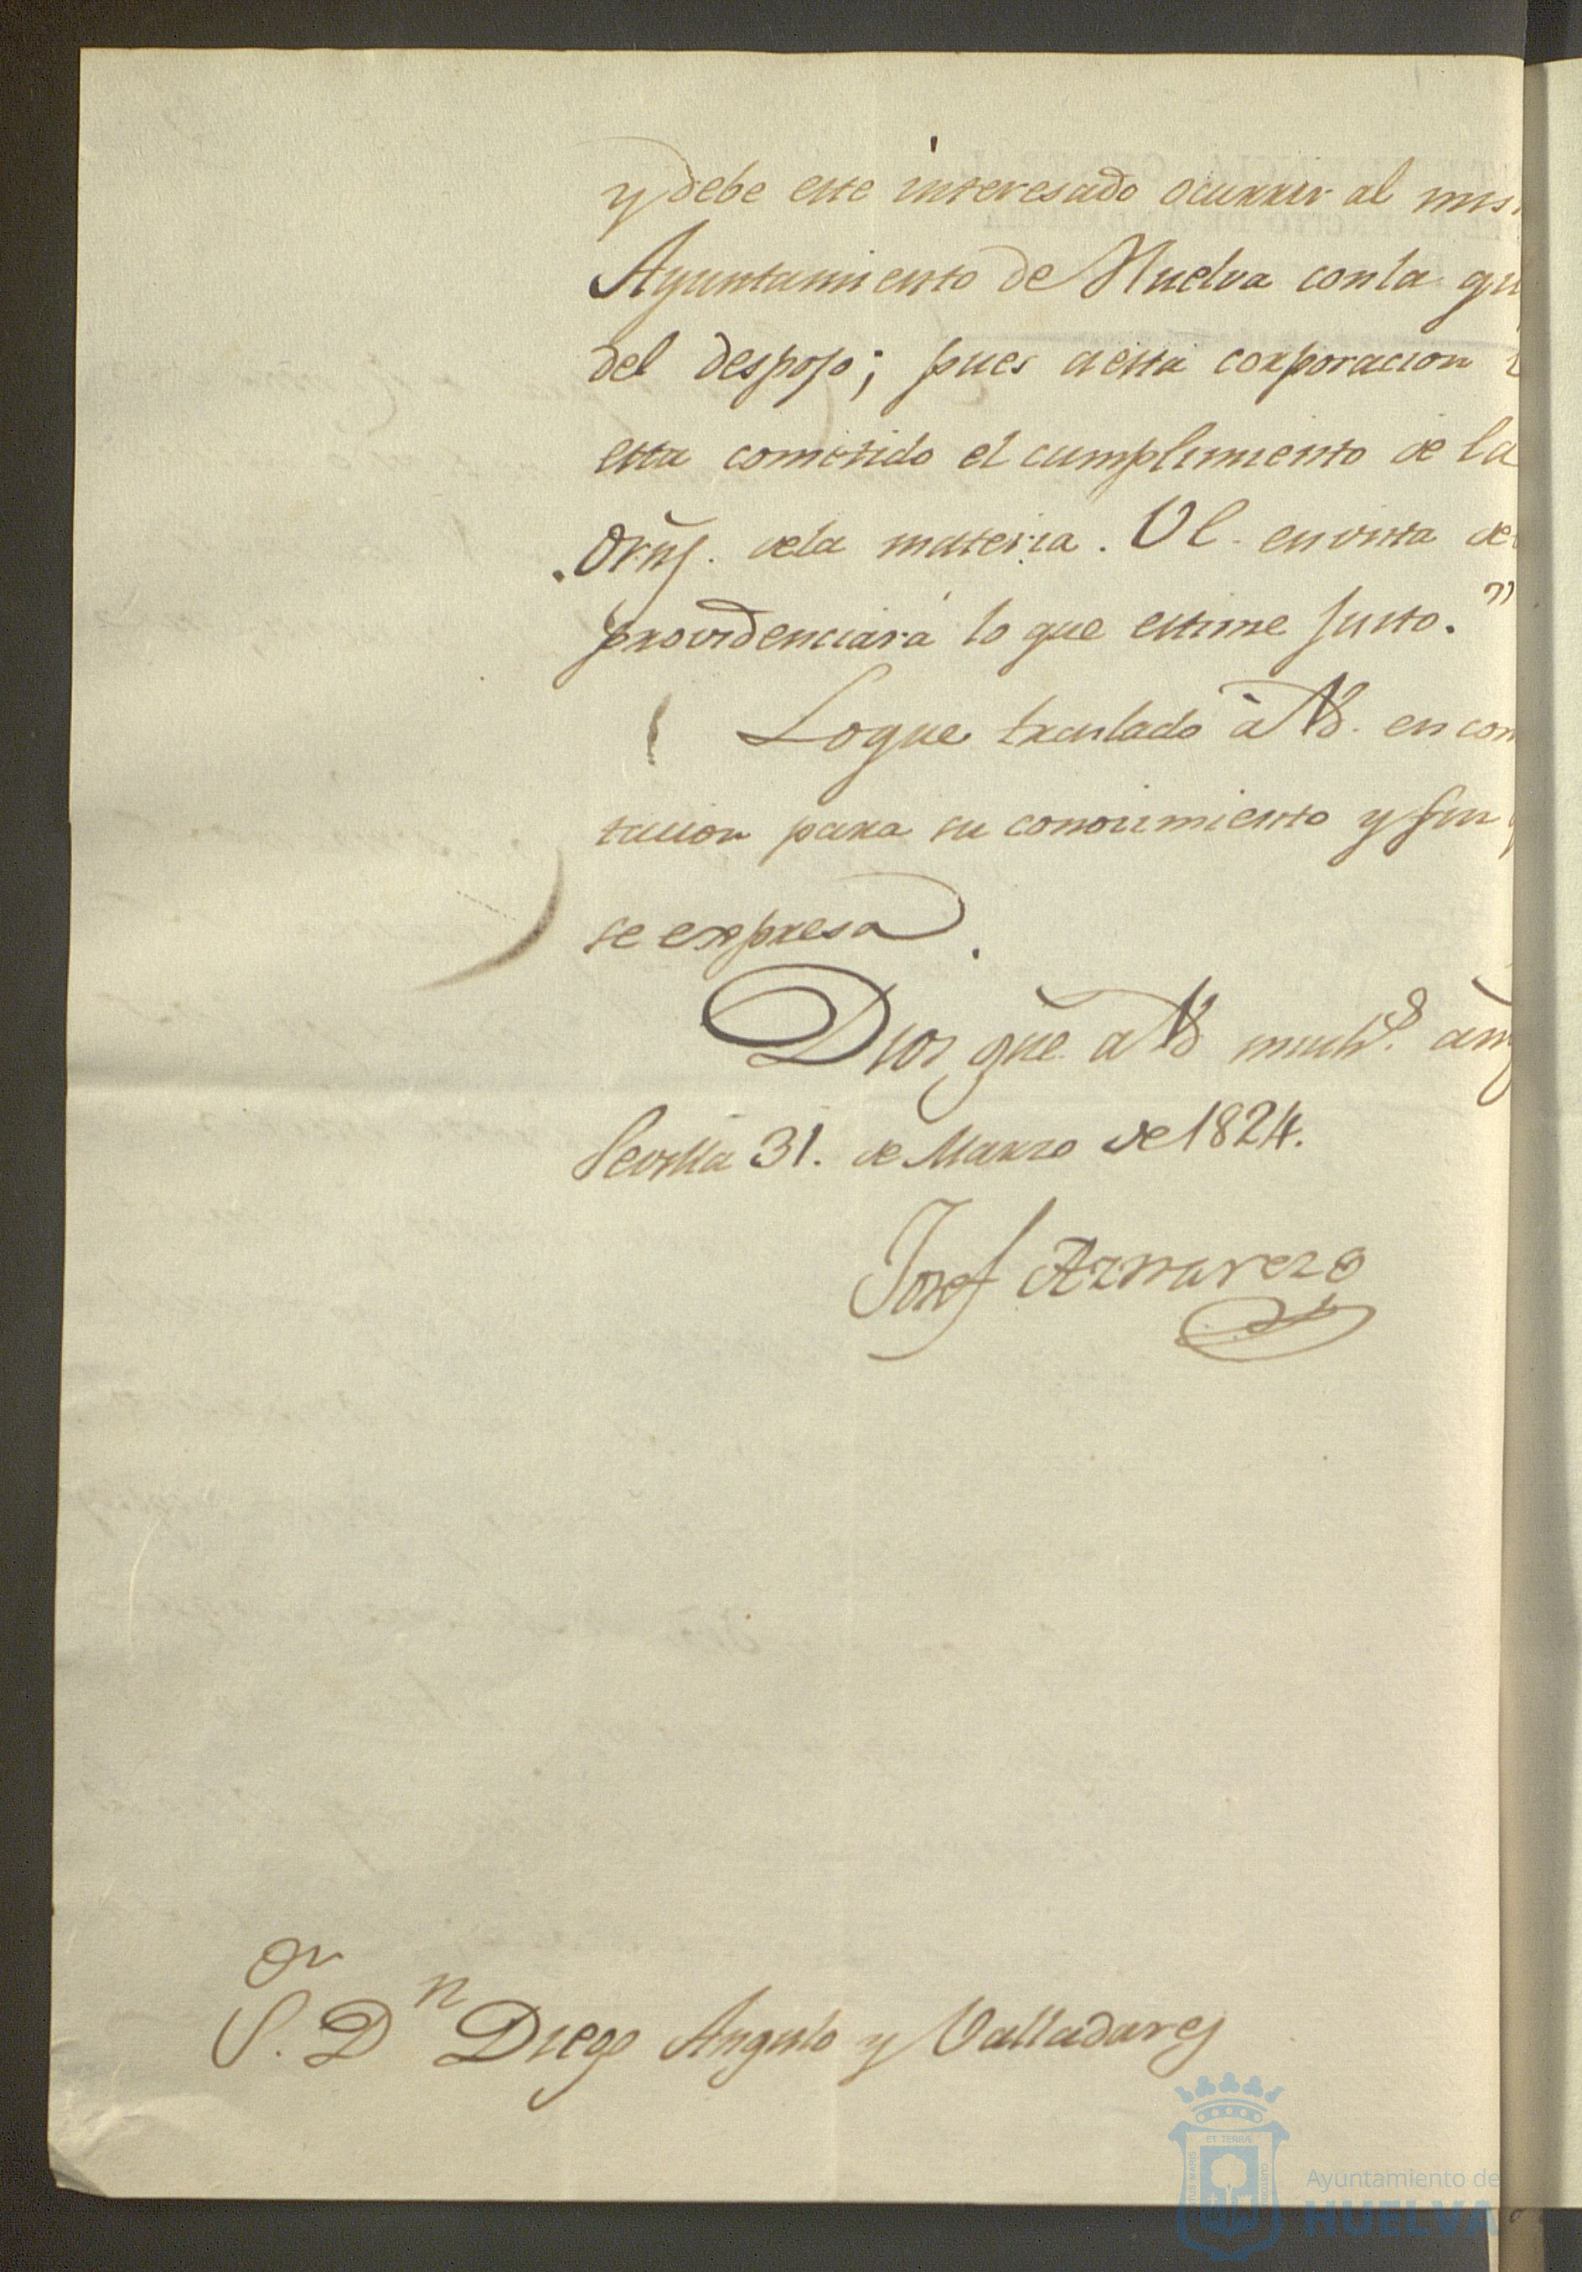 y debe este interesado ocurrir al mis
Ayuntamiento de Huelva con la qu
del despojo; pues a esta corporacion
esta cometido el cumplimiento de la
Orñs. de la materia. VC. en vista de
providenciará lo que estime justo."
Lo que traslado à VS. en con
tacion para su conocimiento y fin
se expresa.
Dios gũe. a VS muchˢ. añs
Sevilla 31. de Marzo de 1824.
Josef Aznarez
Sᵒʳ. Dⁿ Diego Angulo y Valladares
ET TERRÆ
Ayuntamiento de
HUELVA